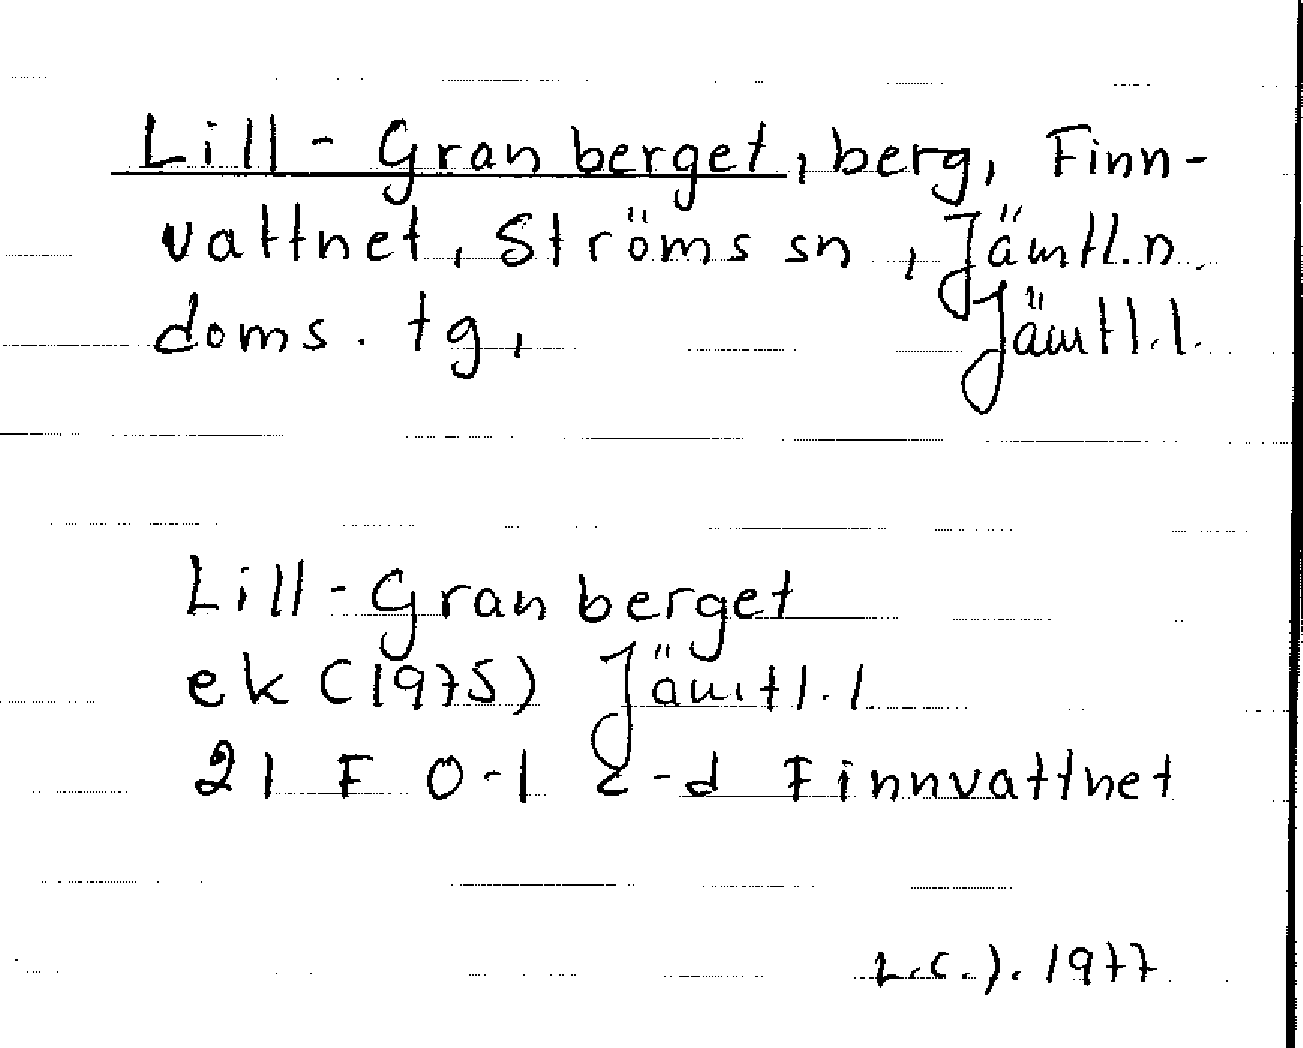 Lill-Granberget, berg, Finn-
vattnet, Ströms sn, Jämtl.n.
doms. tg, Jämtl.l.
Lill-Granberget
ek (1975) Jämtl.l
21 F 0-1 c-d Finnvattnet
1977